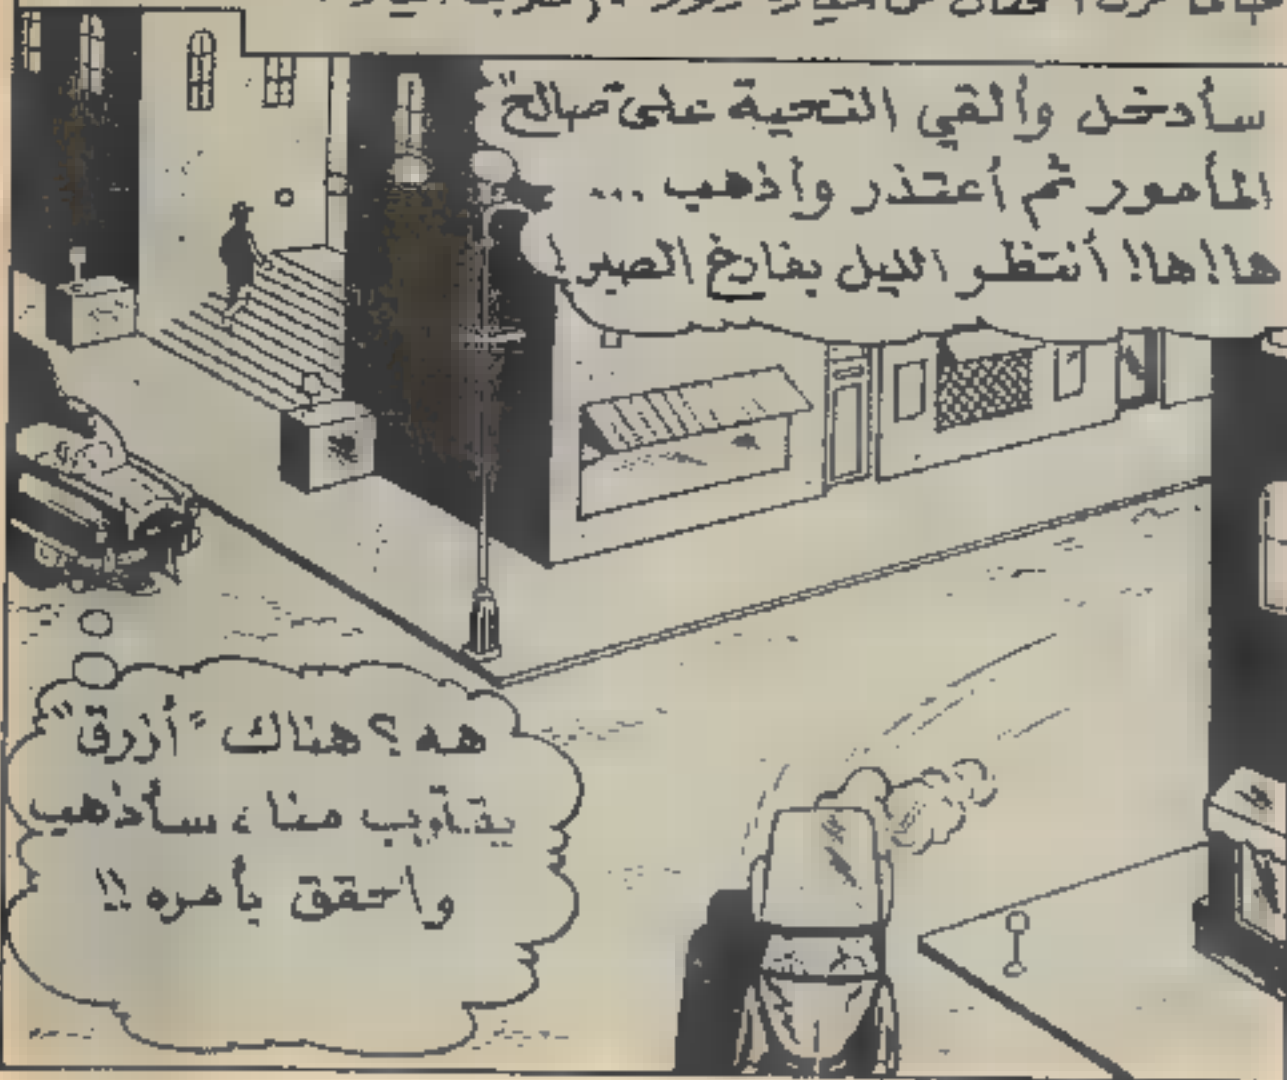 سأدخل وألقي التحية على "صالح"
المأمور ثم أعتذر وأذهب ...
ها! ها! أنتظر الليل بفارغ الصبر!
هه؟ هناك "أزرق"
يقترب منا، سأذهب
واحقق بأمره!!